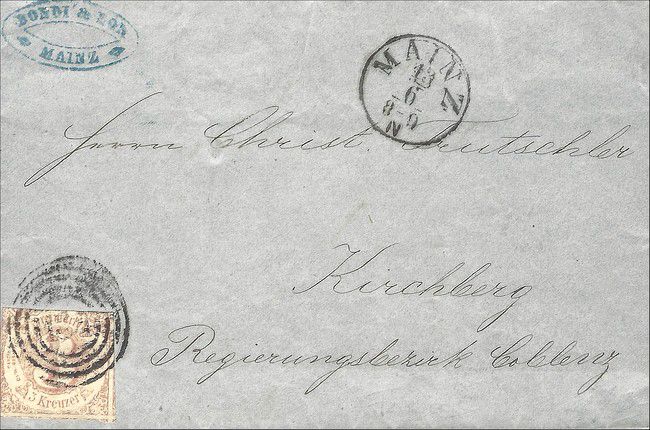 BONDI & LOR
MAINZ
MAINZ
13
6
8-9
N
Herrn Christ. Trutschler
Kirchberg
Regierungsbezirk Coblenz
3 Kreuzer